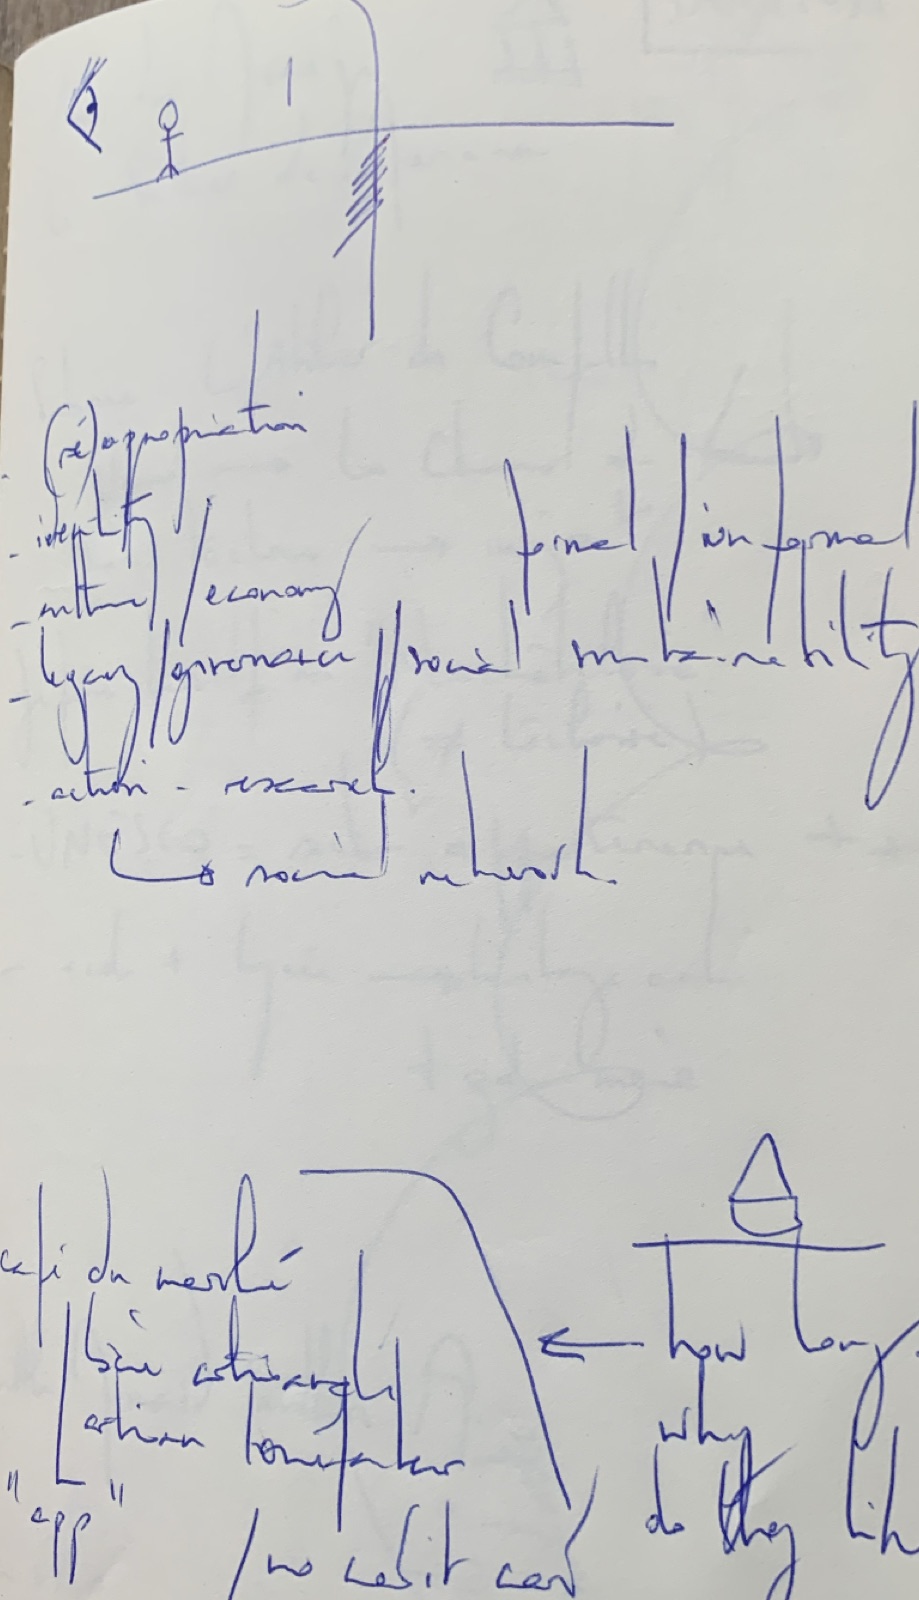 - (ré)appropriation
- identity
formal / informal
- culture / economy
- legacy / governance // social sustainability
- action - research.
↳ social network.
café du marché
how long
bière artisanale
artisan torréfacteur
why
"app"
do they
/ no credit card